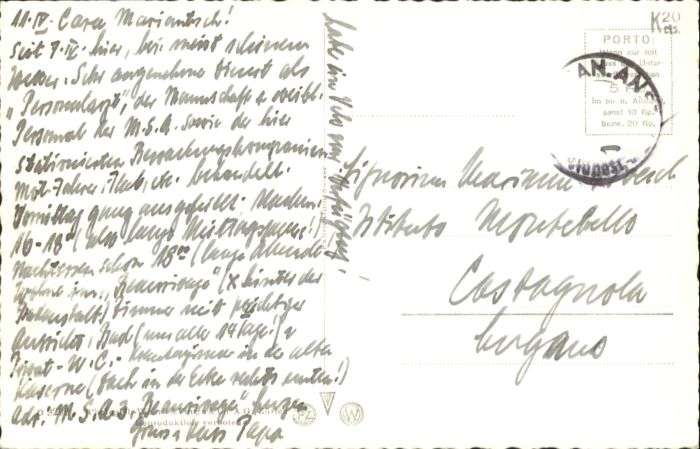 11.IV. Cara Mariantsch!
Seit 7.IV. hier, bei meist schönem
Wetter. Sehr angenehmer Dienst als
"Personalarzt", der Mannschaft u. weibl.
Personal der M.S.A. sowie der hier
stationierten Bewachungskompanien
Mot. Fahrer, Flab, etc. behandelt.
Vormittag ganz ausgefüllt. Nachm.
16-18°° (also lange Mittagspause!)
Nachtessen schon 18°° (lange Abende
Wohne im "Beaurivage" (X hinter der
Badanstalt) Zimmer mit prächtiger
Aussicht, Bad (nur alle 14 Tage!) u
Privat-W.C. - Krankenzimmer in der alten
Kaserne (Dach in der Ecke rechts unten!)
Adr. M.S.A. 3 "Beaurivage"
Gruss u Kuss Papa
habe ein Uhr zur Verfügung!
K20
cts.
PORTO
5
Im
sonst 10 Rp.
bezw. 20 Rp.
AN. ANS
Signorina Marianne
Istituto Montebello
Castagnola
Lugano
PZ W
Reproduktion verboten